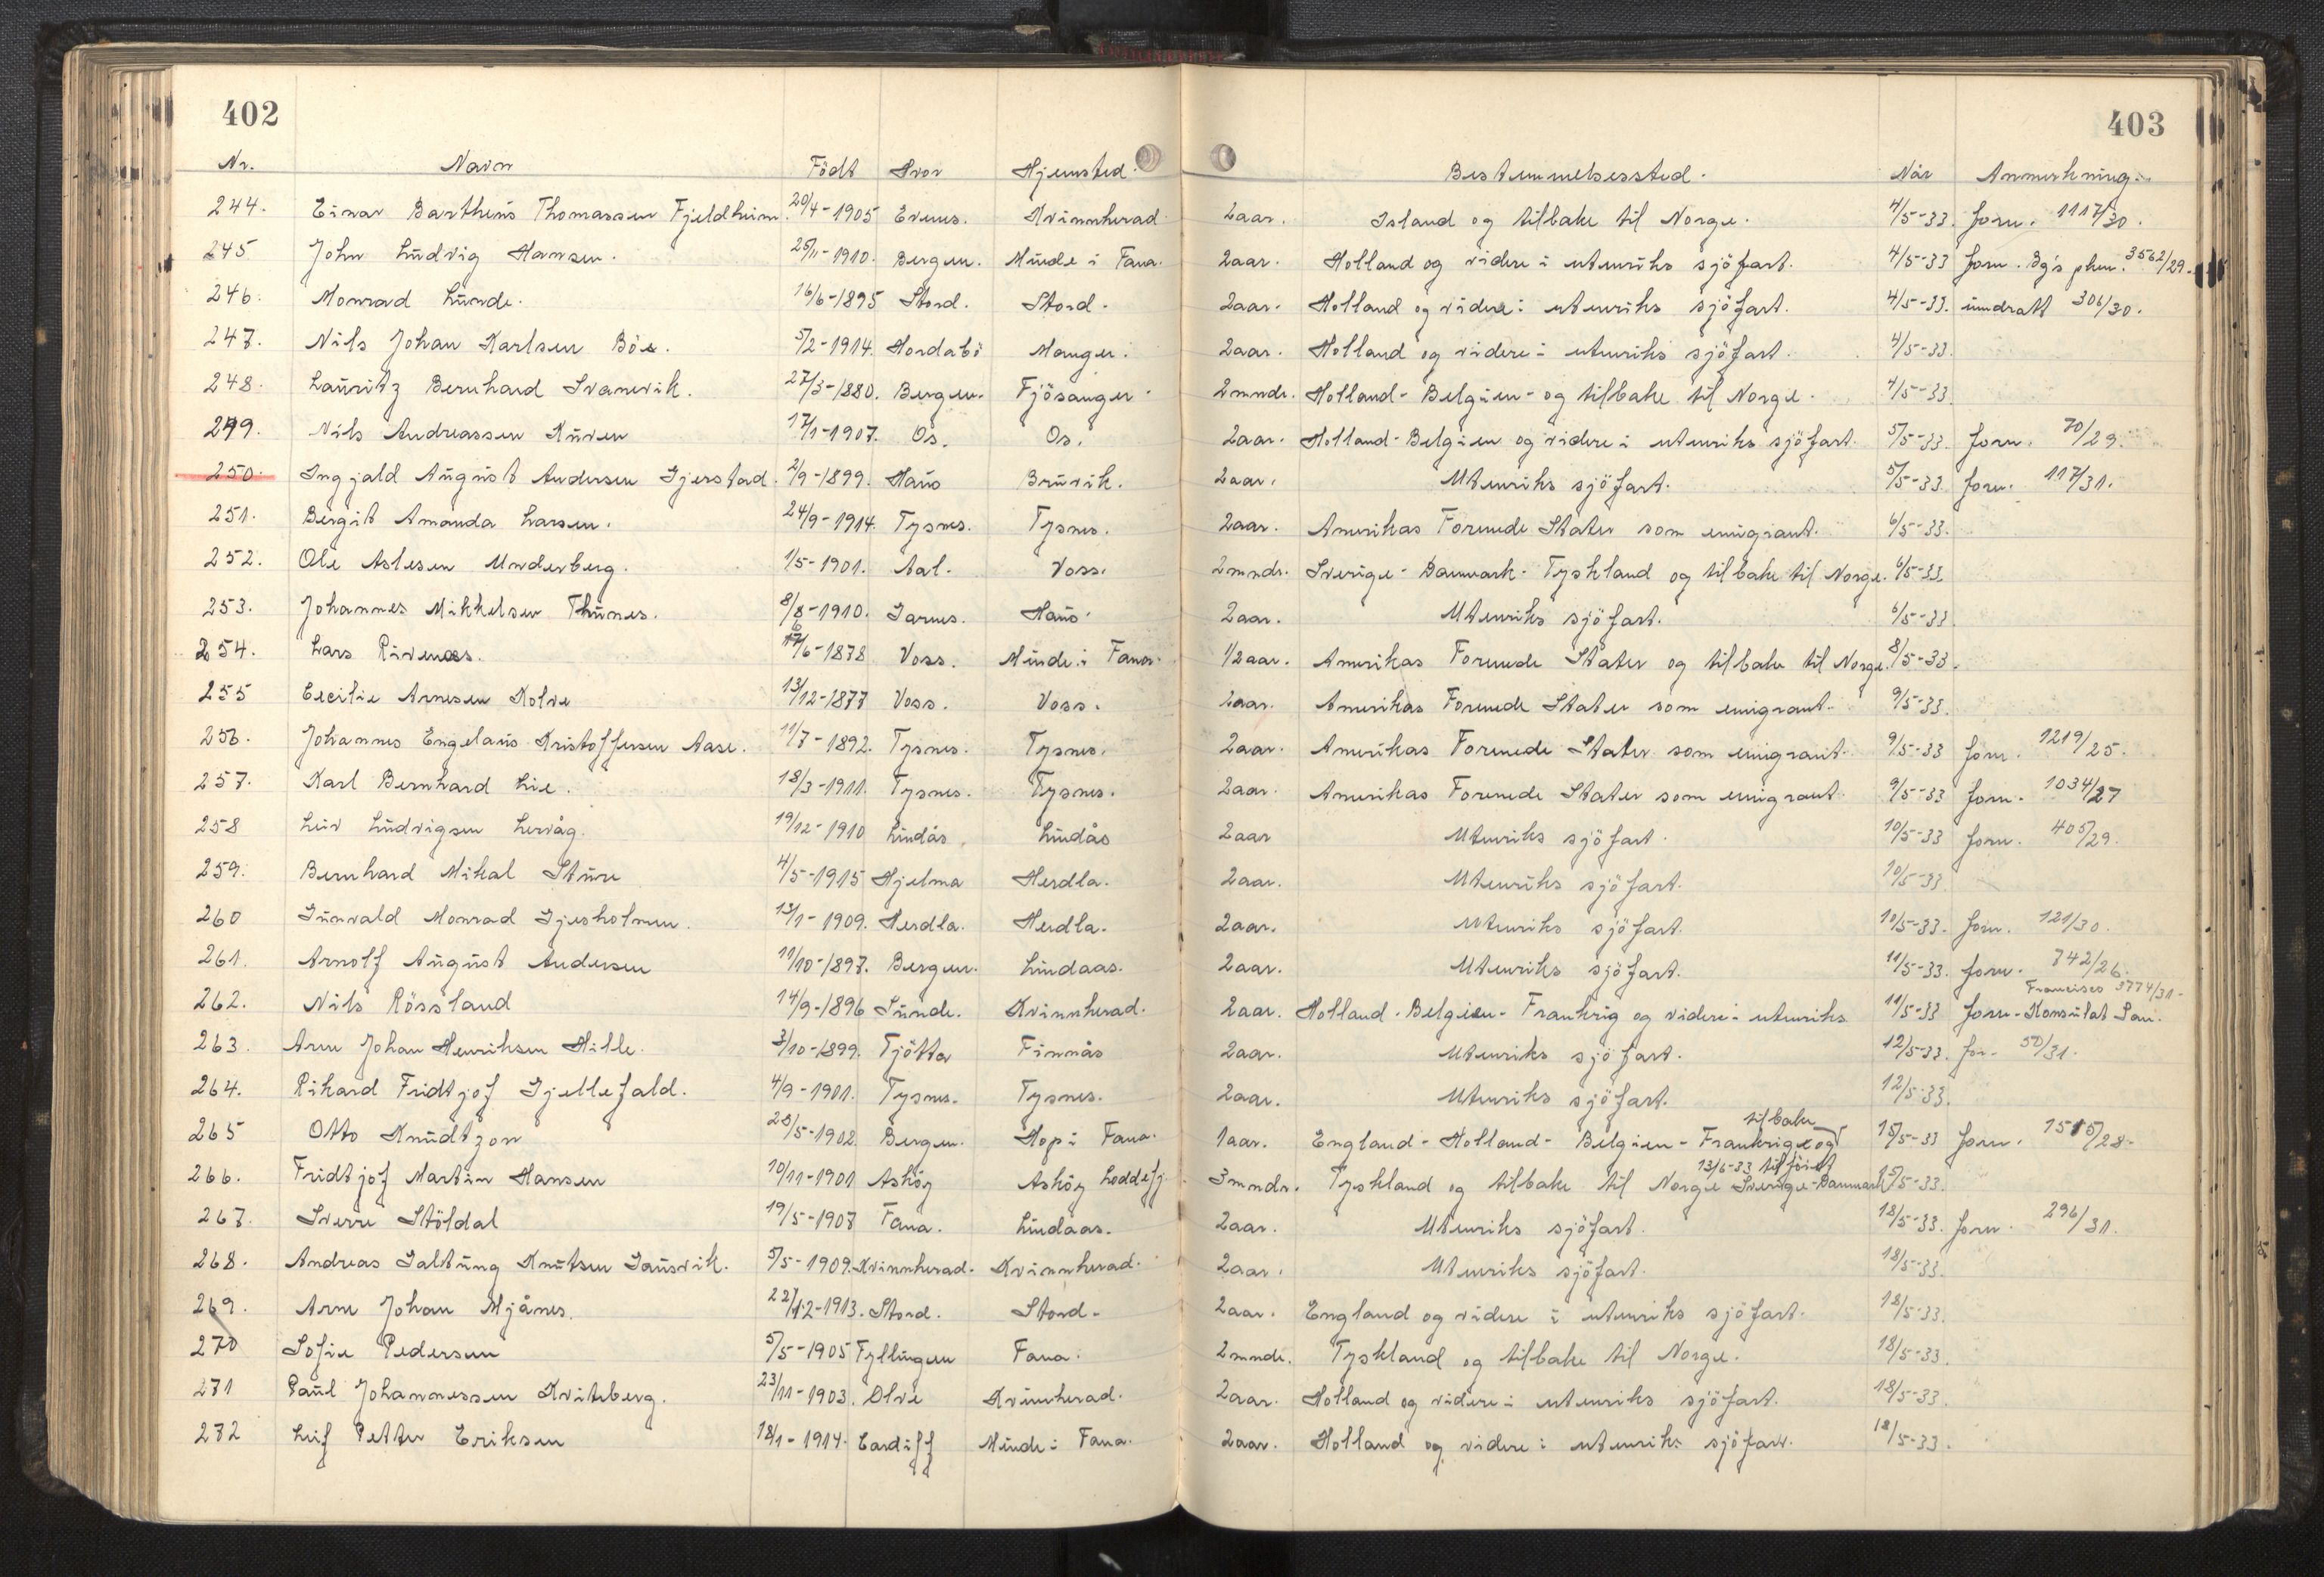 402
403
Nr. Navn Födt Hvor Hjemsted. Bestemmelsessted. Når Anmerkning.
244. Einar Barthens Thomassen Fjeldheim. 20/4-1905 Evenes. Kvinnherad 2aar. Island og tilbake til Norge. 4/5-33. forn. 1117/30.
245 John Ludvig Hansen. 25/11-1910. Bergen. Minde i Fana. 2aar. Holland og videre i utenriks sjöfart. 4/5-33 forn. Bg's pken. 3562/29.
246. Monrad Lunde. 16/6-1895 Stord. Stord. 2aar. Holland og videre i utenriks sjöfart. 4/5-33. inndratt 306/30.
247. Nils Johan Karlsen Böe. 5/2-1914. Hordabö Manger. 2aar. Holland og videre i utenriks sjöfart. 4/5-33.
248. Lauritz Bernhard Svanevik. 27/3-1880. Bergen. Fjösanger 2mndr. Holland - Belgien - og tilbake til Norge. 4/5-33.
249. Nils Andreassen Kuven 17/1-1907. Os. Os. 2aar. Holland - Belgien og videre i utenriks sjöfart. 5/5-33. forn. 70/29.
250. Ingjald August Andersen Gjerstad. 2/9-1899. Haus Bruvik. 2aar. Utenriks sjöfart. 5/5-33. forn. 117/31.
251. Bergit Amanda Larsen. 24/9-1914. Tysnes. Tysnes. 2aar. Amerikas Forenede Stater som emigrant. 6/5-33.
252. Ole Aslesen Underberg. 1/5-1901. Aal. Voss. 2mndr. Sverige - Danmark - Tyskland og tilbake til Norge. 6/5-33.
253. Johannes Mikkelsen Thunes. 8/8-1910. Garnes. Haus. 2aar. Utenriks sjöfart. 6/5-33
254. Lars Rivenæs. 17/6-1878 Voss. Minde i Fana. 1/2aar. Amerikas Forenede Stater og tilbake til Norge. 8/5-33.
255 Cecilie Arnesen Kolve 13/12-1877 Voss. Voss. 2aar. Amerikas Forenede Stater som emigrant. 9/5-33.
256. Johannes Engelaus Kristoffersen Aase. 11/7-1892. Tysnes. Tysnes. 2aar. Amerikas Forenede Stater som emigrant. 9/5-33 forn. 1219/25.
257. Karl Bernhard Lie. 18/3-1911. Tysnes. Tysnes. 2aar. Amerikas Forenede Stater som emigrant. 9/5-33 forn. 1034/27
258 Leiv Ludvigsen Lervåg. 19/12-1910 Lindås Lindås 2aar Utenriks sjöfart. 10/5-33 forn. 405/29.
259. Bernhard Mikal Sture 4/5-1915 Hjelma Herdla. 2aar. Utenriks sjöfart. 10/5-33
260 Gunvald Monrad Gjesholmen. 13/1-1909. Herdla. Herdla. 2aar. Utenriks sjöfart. 10/5-33. forn. 121/30.
261. Arnolf August Andersen 11/10-1897. Bergen. Lindaas. 2aar. Utenriks sjöfart. 11/5-33. forn. 742/26.
Francisco 3774/31-
262. Nils Rössland 14/9-1896 Sunde. Kvinnherad. 2aar. Holland - Belgien - Frankrig og videre i utenriks 11/5-33 forn - Konsulat San.
263. Arne Johan Henriksen Hille. 3/10-1899. Tjötta Finnås 2aar. Utenriks sjöfart. 12/5-33. for. 50/31.
264. Rikard Fridtjof Gjellefald. 4/9-1901. Tysnes. Tysnes. 2aar. Utenriks sjöfart. 12/5-33.
tilbake
265 Otto Knudtzon 23/5-1902. Bergen. Hop i Fana. 1aar. England - Holland - Belgien - Frankrige og 15/5-33 forn. 1515/28.
13/6-33 tilföiet
266. Fridtjof Martin Hansen 10/11-1901 Asköy Asköy Loddefj. 3mndr. Tyskland og tilbake til Norge Sverige-Danmark 15/5-33.
267. Sverre Stöldal 19/5-1907 Fana. Lindaas. 2aar. Utenriks sjöfart. 18/5-33. forn. 296/31.
268. Andreas Galtung Knutsen Gausvik. 5/5-1909. Kvinnherad. Kvinnherad. 2aar. Utenriks sjöfart. 18/5-33.
269. Arne Johan Mjånes. 22/12-1913. Stord. Stord. 2aar. England og videre i utenriks sjöfart. 18/5-33.
270 Sofie Pedersen 5/5-1905 Fyllingen Fana. 2mndr. Tyskland og tilbake til Norge. 18/5-33.
271 Paul Johannessen Kviteberg. 23/11-1903. Ølve Kvinnherad. 2aar. Holland og videre i utenriks sjöfart. 18/5-33.
272 Leif Petter Eriksen 18/1-1914. Cardiff Minde i Fana. 2aar. Holland og videre i utenriks sjöfart. 18/5-33.